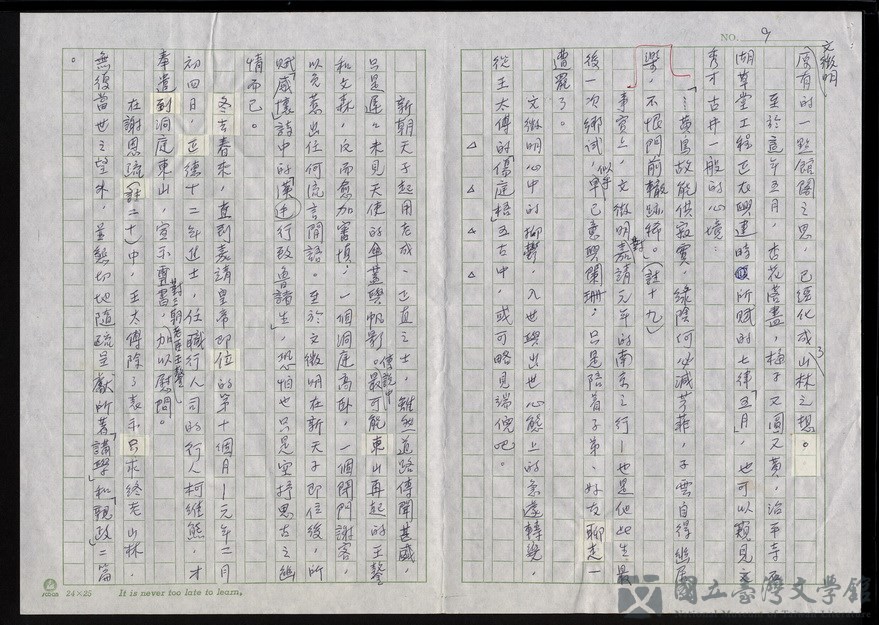 NO. 9
文徵明
原有的一點館閣之思，已經化成山林之想。
至於這年五月，杏花落盡，梅子又圓又黃，治平寺石
湖草堂工程正在興建時所賦的七律「五月」，也可以窺見文
秀才古井一般的心境：
「…黃鳥故能供寂寞，綠陰何必減芳菲，子雲自得幽居
樂，不恨門前轍跡稀。」（註十九）
事實上，文徵明對嘉靖元年的南京之行－也是他此生最
後一次鄉試，似乎早已意興闌珊，只是陪着子弟、好友聊走一
遭罷了。
文徵明心中的抑鬱，入世與出世心態上的急遽轉變，
從王太傅的「儒庭梧」五古中，或可略見端倪吧。
△ △ △ △
新朝天子起用老成、正直之士，雖然道路傳聞甚盛，
只是遲遲未見天使的傘蓋與帆影。傳說中最可能東山再起的王鏊
和文森，反而愈加審慎，一個洞庭高卧，一個閉門謝客，
以免惹出任何流言閒語。至於文徵明在新天子即位後，所
賦「感懷」詩中的「漢廷行致魯諸生」，恐怕也只是空抒思古之幽
情而已。
冬去春來，直到嘉靖皇帝即位的第十個月－元年二月
初四日，正德十二年進士，任職行人司的行人柯維熊，才
奉遣到洞庭東山，宣示璽書，對三朝老臣王鏊加以慰問。
在謝恩疏（註二十）中，王太傅除了表示只求終老山林，
無復當世之望外，並懇切地隨疏呈獻所著「講學」和「親政」二篇
。
24×25
It is never too late to learn.
國立臺灣文學館
National Museum of Taiwan Literature